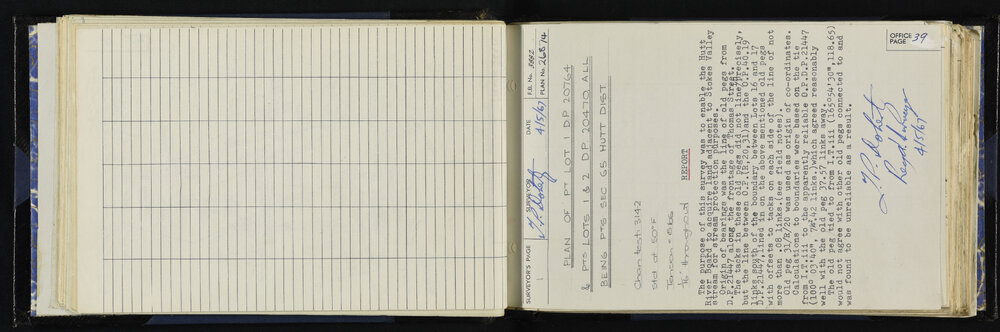 OFFICE PAGE 39
SURVEYOR'S PAGE 1
SURVEYOR J.P. Doherty
DATE 4/5/67
F.B. No. 3662
PLAN No. 26874
PLAN OF PT LOT DP 20764
& PTS LOTS 1 & 2 DP 20470 ALL
BEING PTS SEC 65 HUTT DIST.
Chain test 3142
Std at 50°F
Tension 8lbs
REPORT
The purpose of this survey was to enable the Hutt
River Board to acquire land adjacent to Stokes Valley
stream for stream protection purposes.
Origin of bearings was the line of old pegs from
D.P.21447 along the frontage of Thomas Street.
The tacks in these old pegs did not line precisely,
but the line between O.P.(R.20.31) and the O.P.40.19
links south of the boundary between Lots 16 and 17
D.P.21447, lined in on the above mentioned old pegs
with offsets to tacks on each side of the line of not
more than .08 links.(see field notes).
Old peg 31/R/20 was used as origin of co-ordinates.
Calculations to boundaries were based on the tie
from I.T.iii to the apparently reliable O.P.D.P.21447
(100° 03'40", 74.42 links, which agreed reasonably
well with the old peg 37.57 links away.
The old peg tied to from I.T.iii (165°54'30", 118.65)
would not agree with other old pegs connected to and
was found to be unreliable as a result.
J.P. Doherty
Regd Surveyor
4/5/67